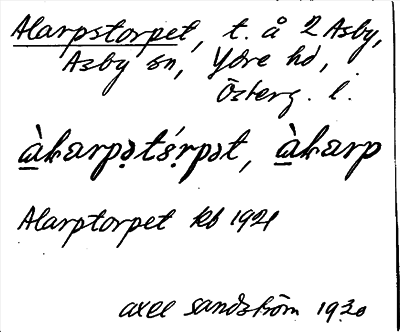 Alarpstorpet, t. å 2 Asby,
Asby sn, Ydre hd,
Österg. l.
àkarpətśrpət, àkarp
Alarptorpet kb 1921
Axel Sandström 1930